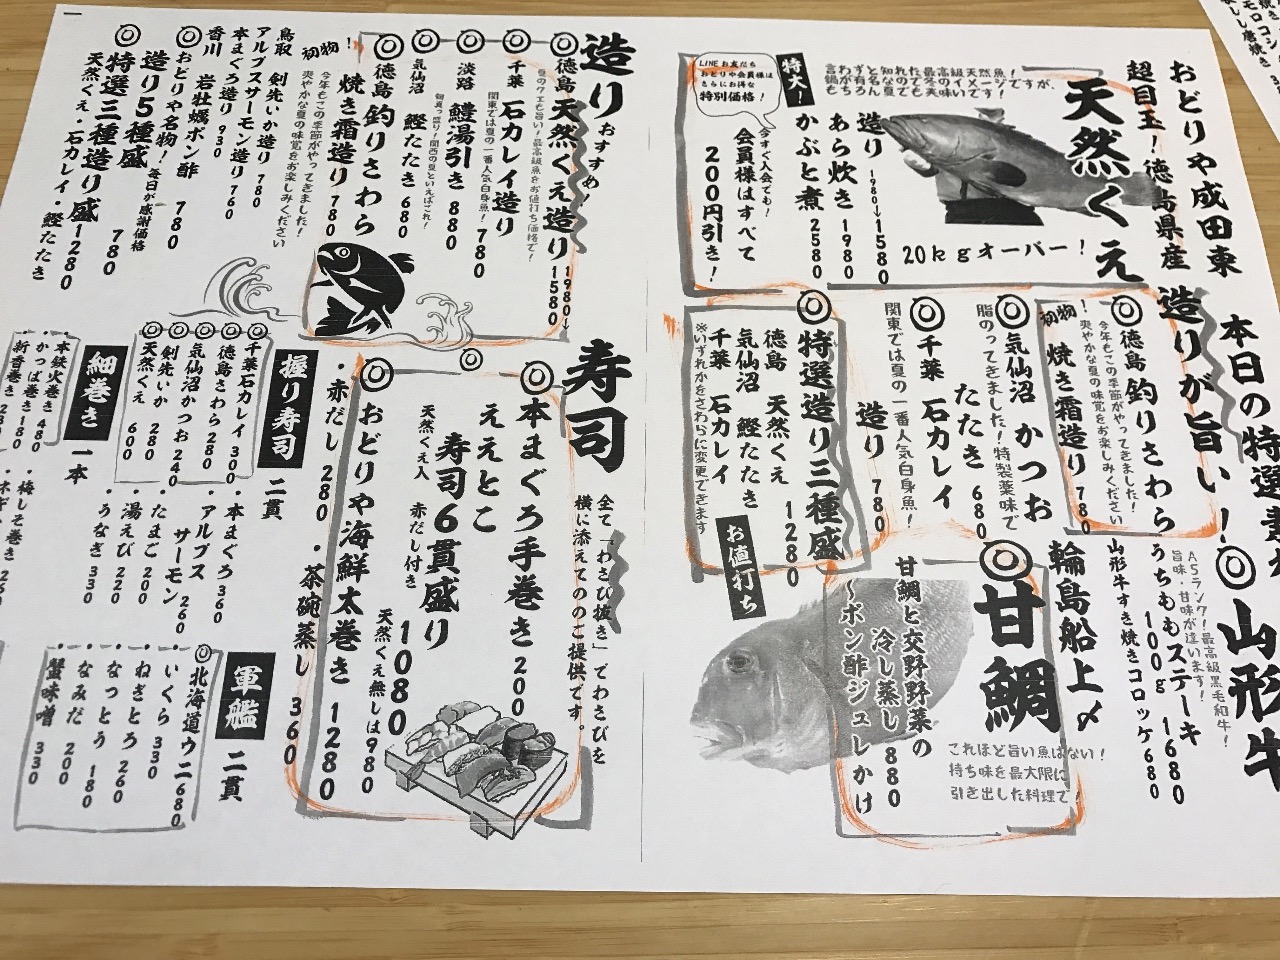 おどりや成田東
本日の特選素
超目玉!徳島県産
造りが旨い!
天然くえ
20kgオーバー!
言わずと知れた最高級天然魚!
鍋が有名な冬のイメージですが、
もちろん夏でも美味いです!
特大!
造り 1980→1580
あら炊き 1980
かぶと煮 2580
LINEお友だち
おどりや会員様は
さらにお得な
特別価格!
今すぐ入会でも!
会員様はすべて
200円引き!
◎山形牛
A5ランク!最高級黒毛和牛!
旨味・甘味が違います!
うちももステーキ
100g 1680
山形牛すき焼きコロッケ680
◎徳島 釣りさわら
今年もこの季節がやってきました!
爽やかな夏の味覚をお楽しみください
初物!
焼き霜造り 780
◎気仙沼 かつお
脂のってきました!特製薬味で
たたき 680
◎千葉 石カレイ
関東では夏の一番人気白身魚!
造り 780
◎特選造り三種盛
1280
徳島 天然くえ
気仙沼 鰹たたき
千葉 石カレイ
※いずれかをさわらに変更できます
お値打ち
輪島船上〆
◎甘鯛
これほど旨い魚はない!
持ち味を最大限に
引き出した料理で
甘鯛と交野野菜の
冷し蒸し 880
〜ポン酢ジュレかけ
造り おすすめ!
◎徳島 天然くえ造り 1980→1580
夏のクエも旨い!最高級魚をお値打ち価格で!
◎千葉 石カレイ造り 780
関東では夏の一番人気白身魚!
◎淡路 鱧湯引き 880
旬真っ盛り!関西の夏といえばこれ!
◎気仙沼 鰹たたき 680
◎徳島 釣りさわら
焼き霜造り 780
初物!
今年もこの季節がやってきました!
爽やかな夏の味覚をお楽しみください
鳥取 剣先いか造り 780
アルプスサーモン造り 760
本まぐろ造り 930
香川 岩牡蠣ポン酢 780
◎おどりや名物!
造り5種盛 780
毎日が感謝価格
◎特選三種造り盛 1280
天然くえ・石カレイ・鰹たたき
寿司
全て「わさび抜き」でわさびを
横に添えてのご提供です。
◎本まぐろ手巻き 200
◎ええとこ
寿司6貫盛り 1080
天然くえ入 赤だし付き
天然くえ無しは980
◎おどりや海鮮太巻き 1280
・赤だし 280 ・茶碗蒸し 360
握り寿司 二貫
◎千葉石カレイ 300
◎徳島さわら 280
◎気仙沼かつお 240
◎剣先いか 280
◎天然くえ 600
・本まぐろ 360
・アルプスサーモン 260
・たまご 200
・湯えび 220
・うなぎ 330
軍艦 二貫
◎北海道ウニ 680
・いくら 330
・ねぎとろ 260
・なっとう 180
・なみだ 200
・蟹味噌 330
細巻き 一本
・本鉄火巻き 480
・かっぱ巻き 180
・新香巻き
・梅しそ巻き